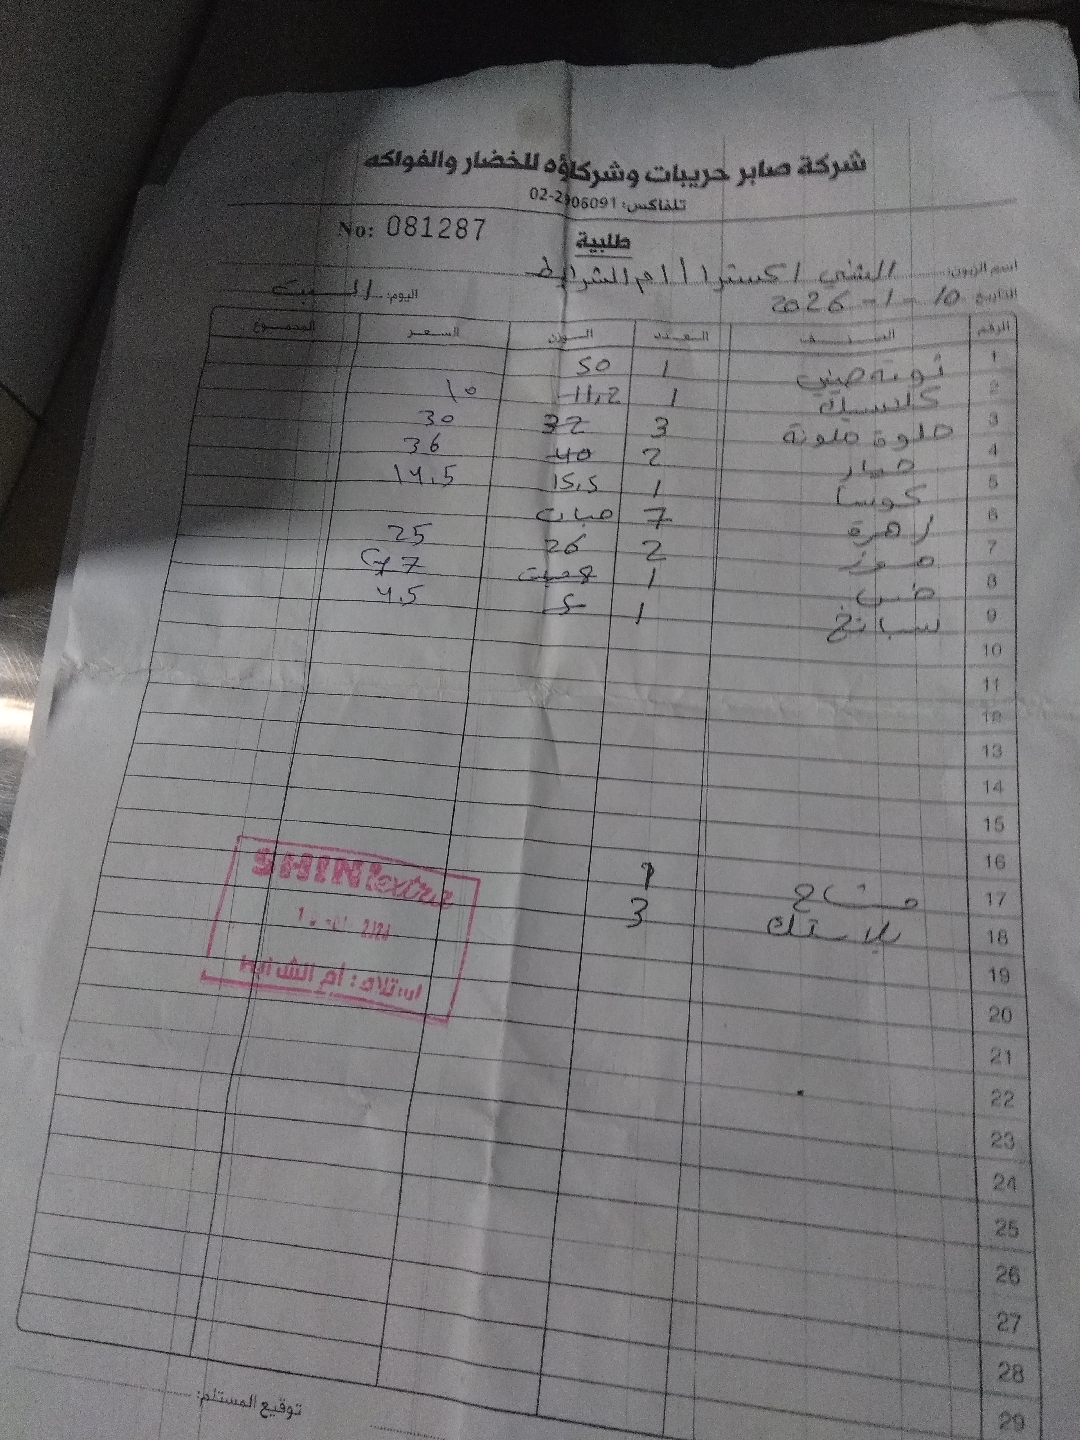 شركة صابر حريبات وشركاؤه للخضار والفواكه
تلفاكس: 02-2906091
No: 081287
طلبية
اسم الزبون: الشني اكسترا / ام الشرايط
التاريخ 10-1-2026 اليوم: السبت
الرقم الصنف العدد الوزن السعر المجموع
1 ثومة صيني 1 50
2 كلاسيك 1 11,2 10
3 حلوة ملونة 3 32 30
4 خيار 2 40 36
5 كوسا 1 15,5 14.5
6 زهرة 7 حبات
7 موز 2 26 25
8 خس 1 8 7
9 سبانخ 1 5 4.5
10
11
12
13
14
15
16
17 مشاح 9
18 بلاستك 3
19
20
21
22
23
24
25
26
27
28
29
SHINI extra
استلام: أم الشرايط
توقيع المستلم: